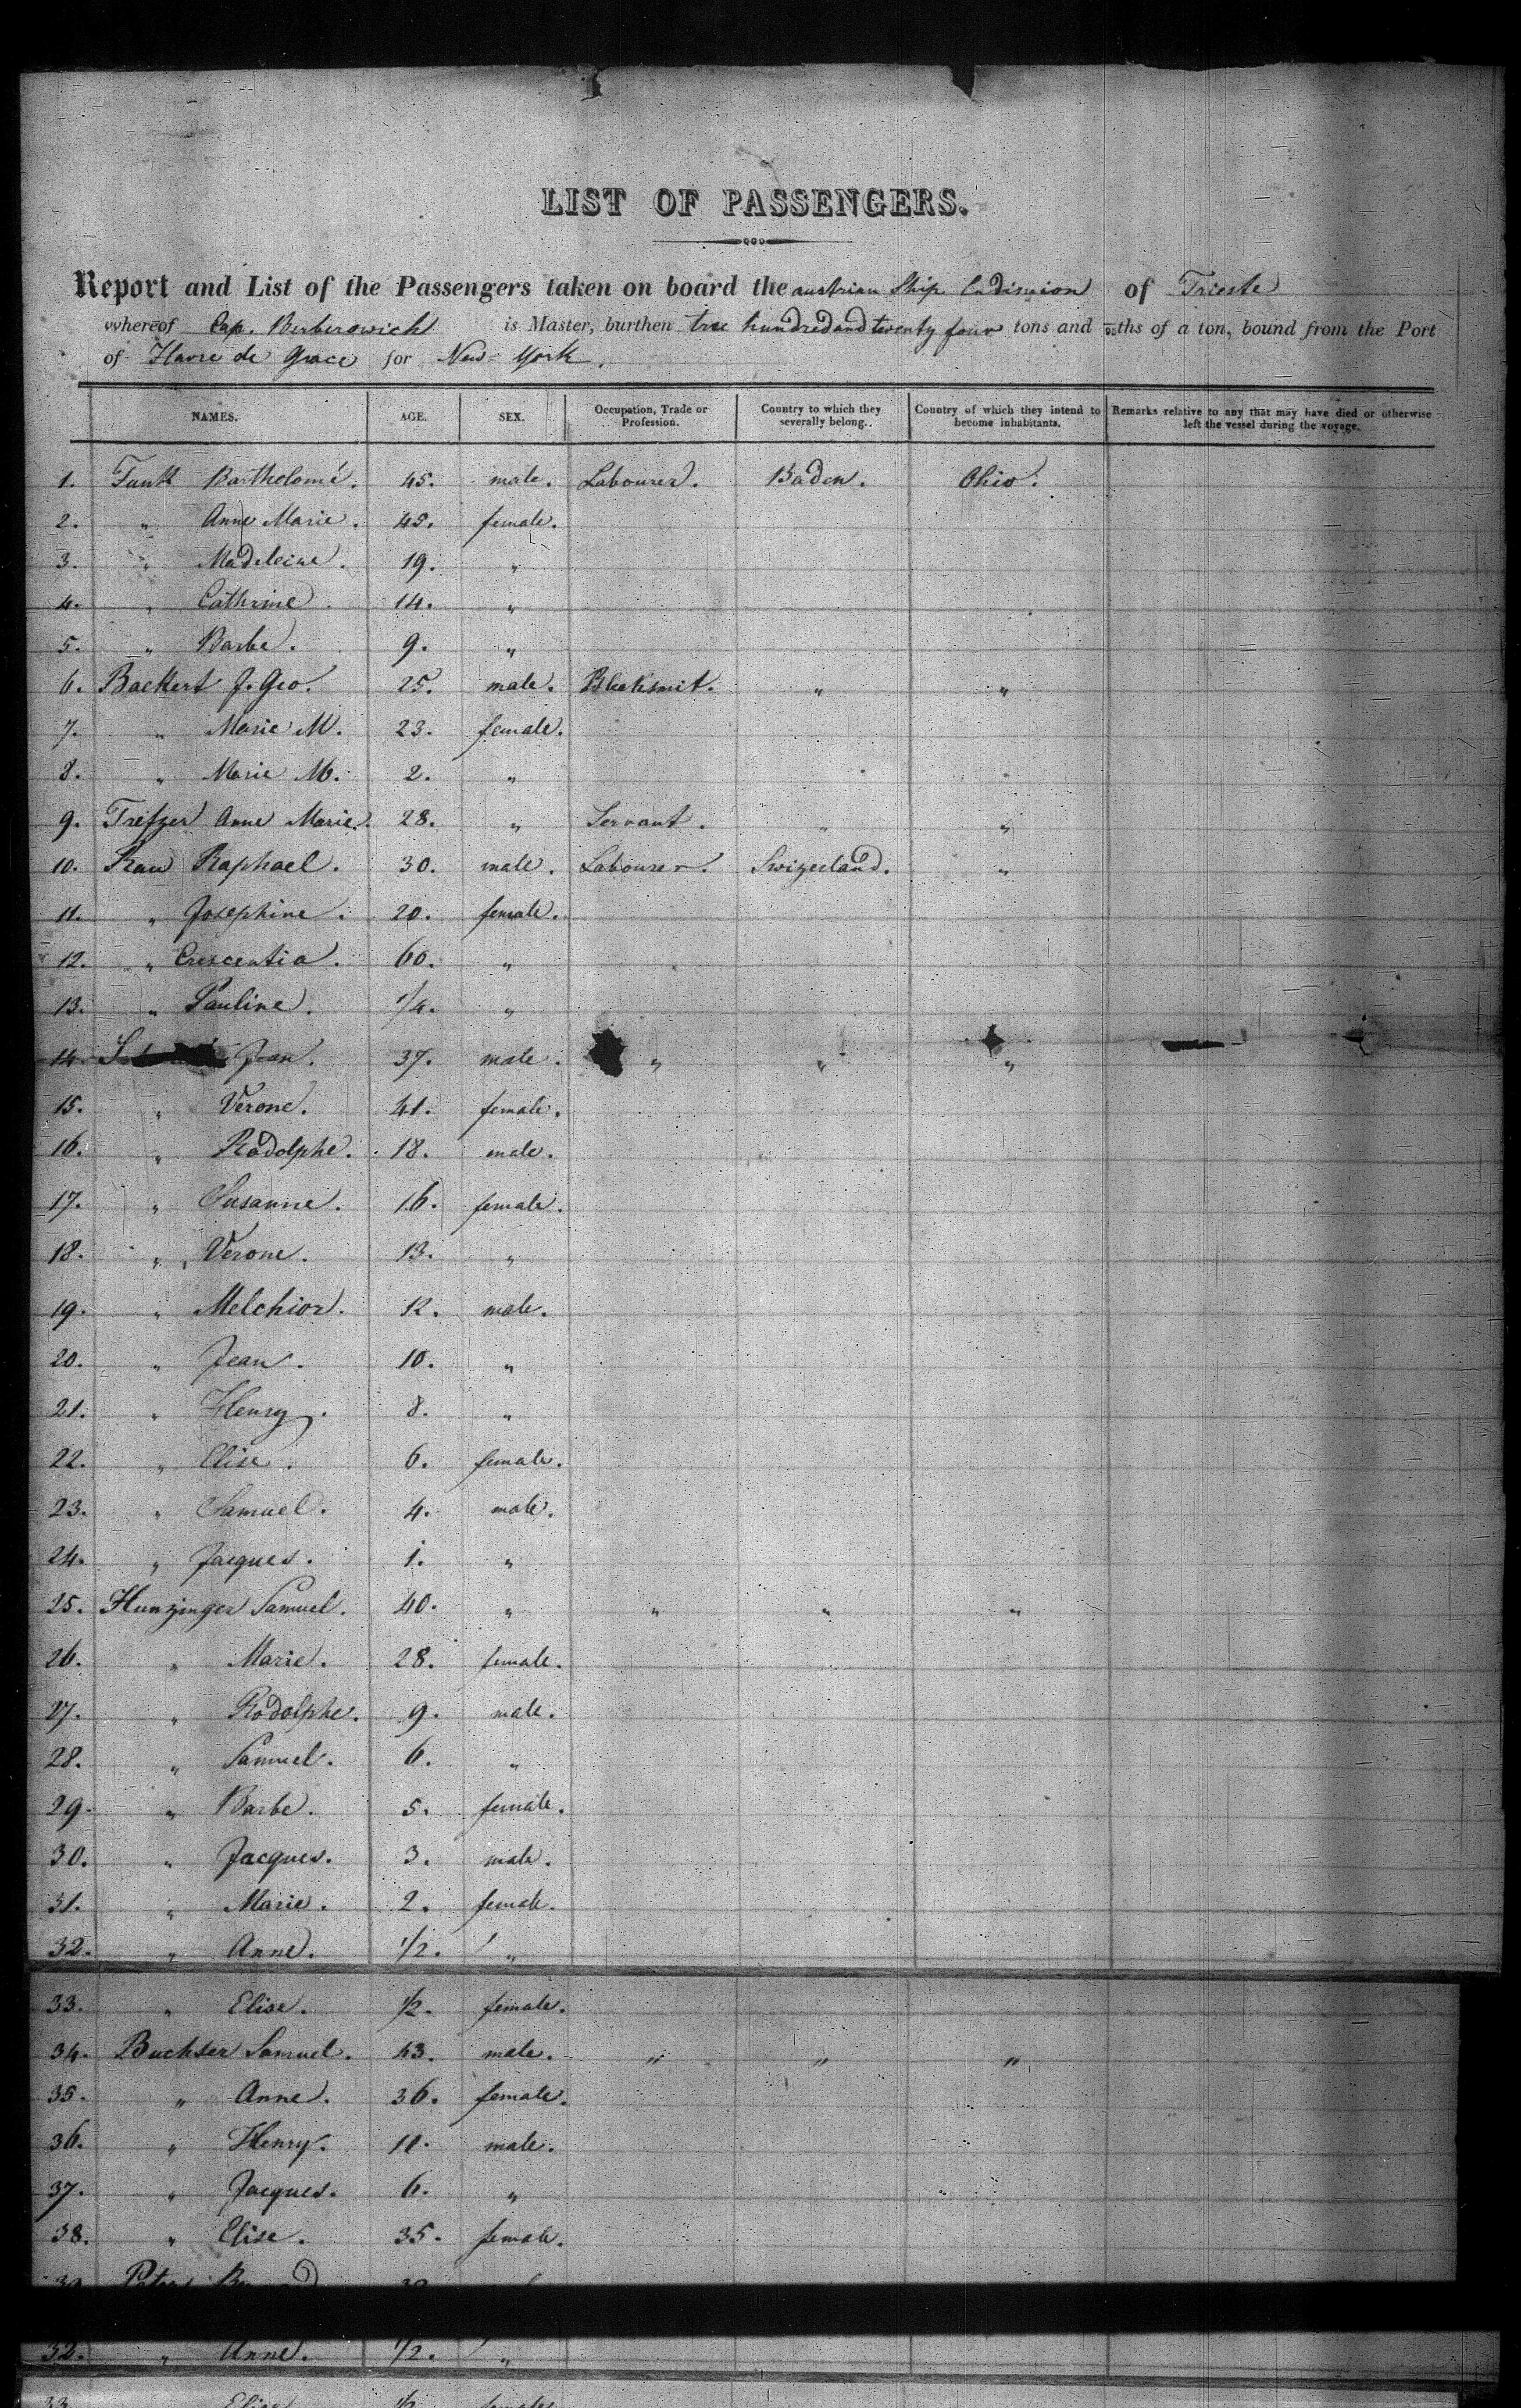 LIST OF PASSENGERS.
Report and List of the Passengers taken on board the austrian Ship Endimion of Trieste
whereof Cap. Berberowich is Master, burthen tree hundred and twenty four tons and ths of a ton, bound from the Port
of Havre de Grace for New-York.
NAMES. AGE. SEX. Occupation, Trade or Profession. Country to which they severally belong.. Country of which they intend to become inhabitants. Remarks relative to any that may have died or otherwise left the vessel during the voyage.
1. Funk Bartholomé. 45. male. Labourer. Baden. Ohio.
2. " Anne Marie. 45. female.
3. " Madeleine. 19. "
4. " Cathrine. 14. "
5. " Barbe. 9. "
6. Backert J. Geo. 25. male. Blaksmit. " "
7. " Marie M. 23. female.
8. " Marie M. 2. "
9. Trefzer Anne Marie. 28. " Servant. " "
10. Rau Raphael. 30. male. Labourer. Swizerland. "
11. " Josephine. 20. female.
12. " Crescentia. 60. "
13. " Pauline. 1/4. "
14. Jean. 37. male. " " "
15. " Verone. 41. female.
16. " Rodolphe. 18. male.
17. " Susanne. 16. female.
18. " Verone. 13. "
19. " Melchior. 12. male.
20. " Jean. 10. "
21. " Henry. 8. "
22. " Elise. 6. female.
23. " Samuel. 4. male.
24. " Jacques. 1. "
25. Hunzinger Samuel. 40. " " " "
26. " Marie. 28. female.
27. " Rodolphe. 9. male.
28. " Samuel. 6. "
29. " Barbe. 5. female.
30. " Jacques. 3. male.
31. " Marie. 2. female.
32. " Anne. 1/2. "
33. " Elise. 1/2. female.
34. Buchser Samuel. 43. male. " " "
35. " Anne. 36. female.
36. " Henry. 11. male.
37. " Jacques. 6. "
38. " Elise. 35. female.
32. " Anne. 1/2. "
33. Elise 1/2. female